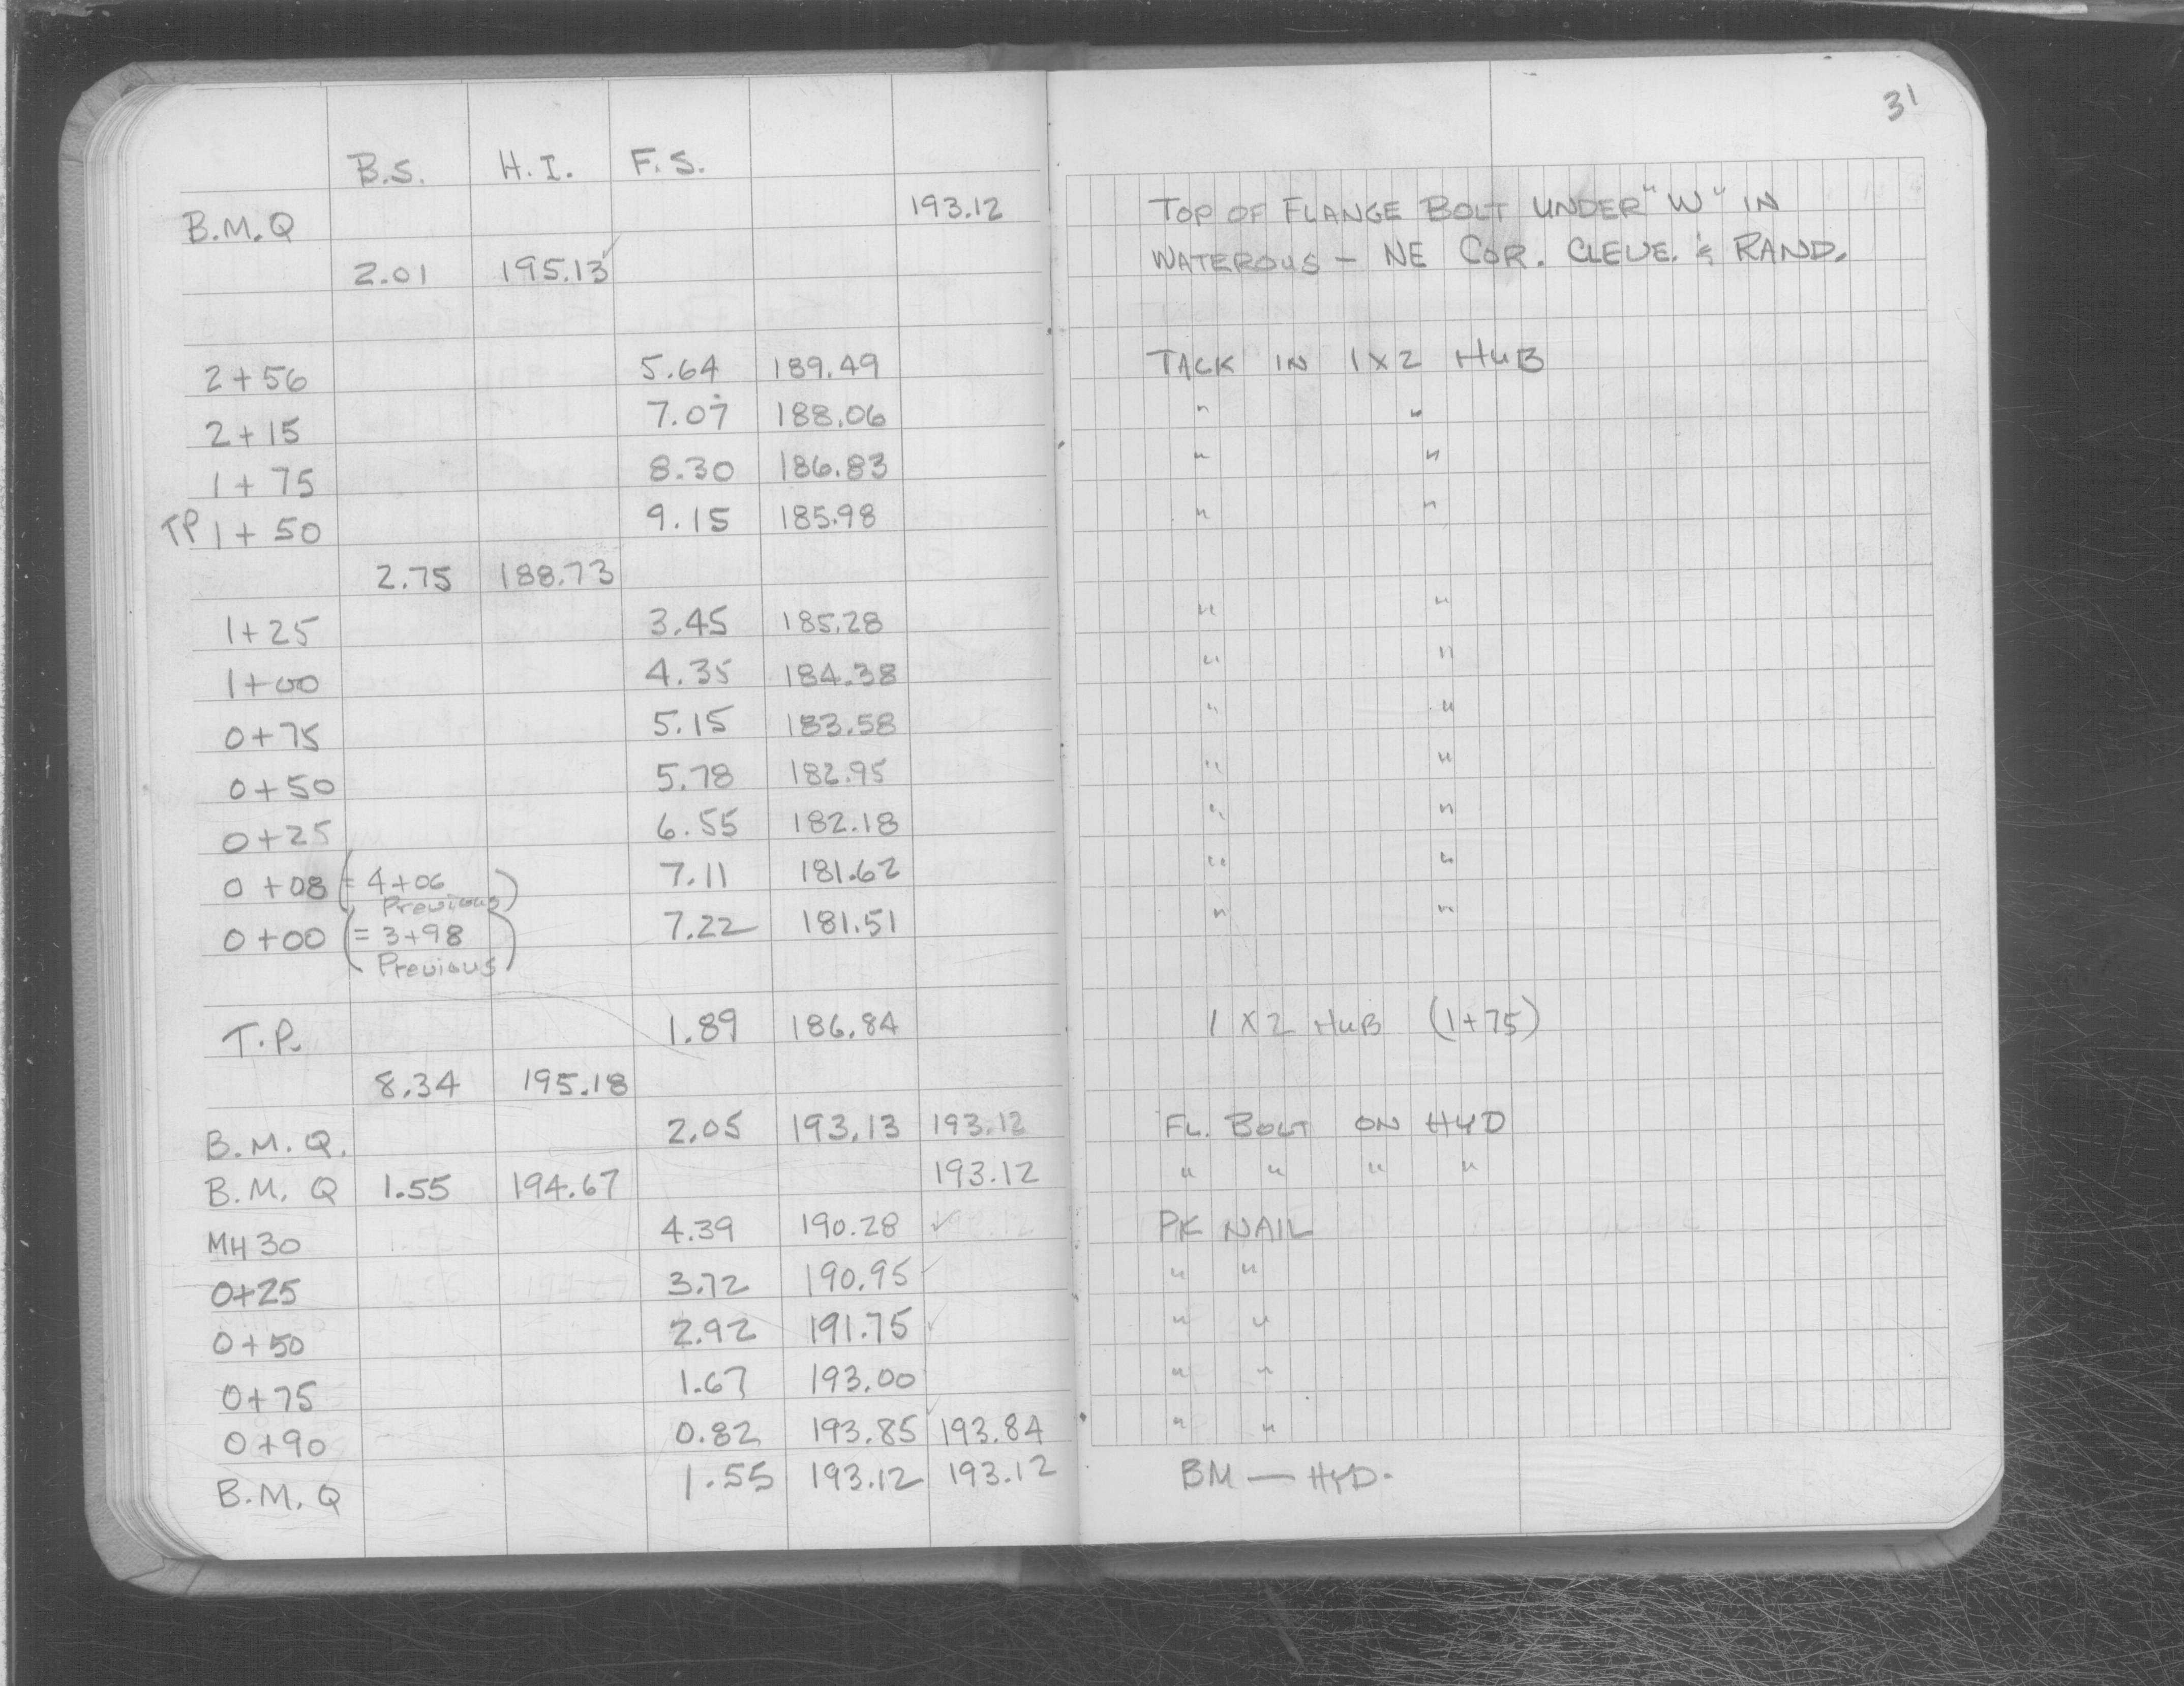 31
B.S. H.I. F.S.
B.M.Q 193.12 TOP OF FLANGE BOLT UNDER "W" IN
2.01 195.13 ✓ WATEROUS - NE COR. CLEVE. & RAND.
2+56 5.64 189.49 TACK IN 1X2 HUB
2+15 7.07 188.06 " "
1+75 8.30 186.83 " "
TP 1+50 9.15 185.98 " "
2.75 188.73
1+25 3.45 185.28 " "
1+00 4.35 184.38 " "
0+75 5.15 183.58 " "
0+50 5.78 182.95 " "
0+25 6.55 182.18 " "
0+08 (= 4+06 Previous) 7.11 181.62 " "
0+00 (= 3+98 Previous) 7.22 181.51 " "
T.P. 1.89 186.84 1 X 2 HUB (1+75)
8.34 195.18
B.M.Q. 2.05 193.13 193.12 FL. BOLT ON HYD
B.M. Q 1.55 194.67 193.12 " " " "
MH 30 4.39 190.28 ✓ PK NAIL
0+25 3.72 190.95 ✓ " "
0+50 2.92 191.75 ✓ " "
0+75 1.67 193.00 " "
0+90 0.82 193.85 ✓ 193.84 " "
B.M.Q 1.55 193.12 193.12 BM — HYD.